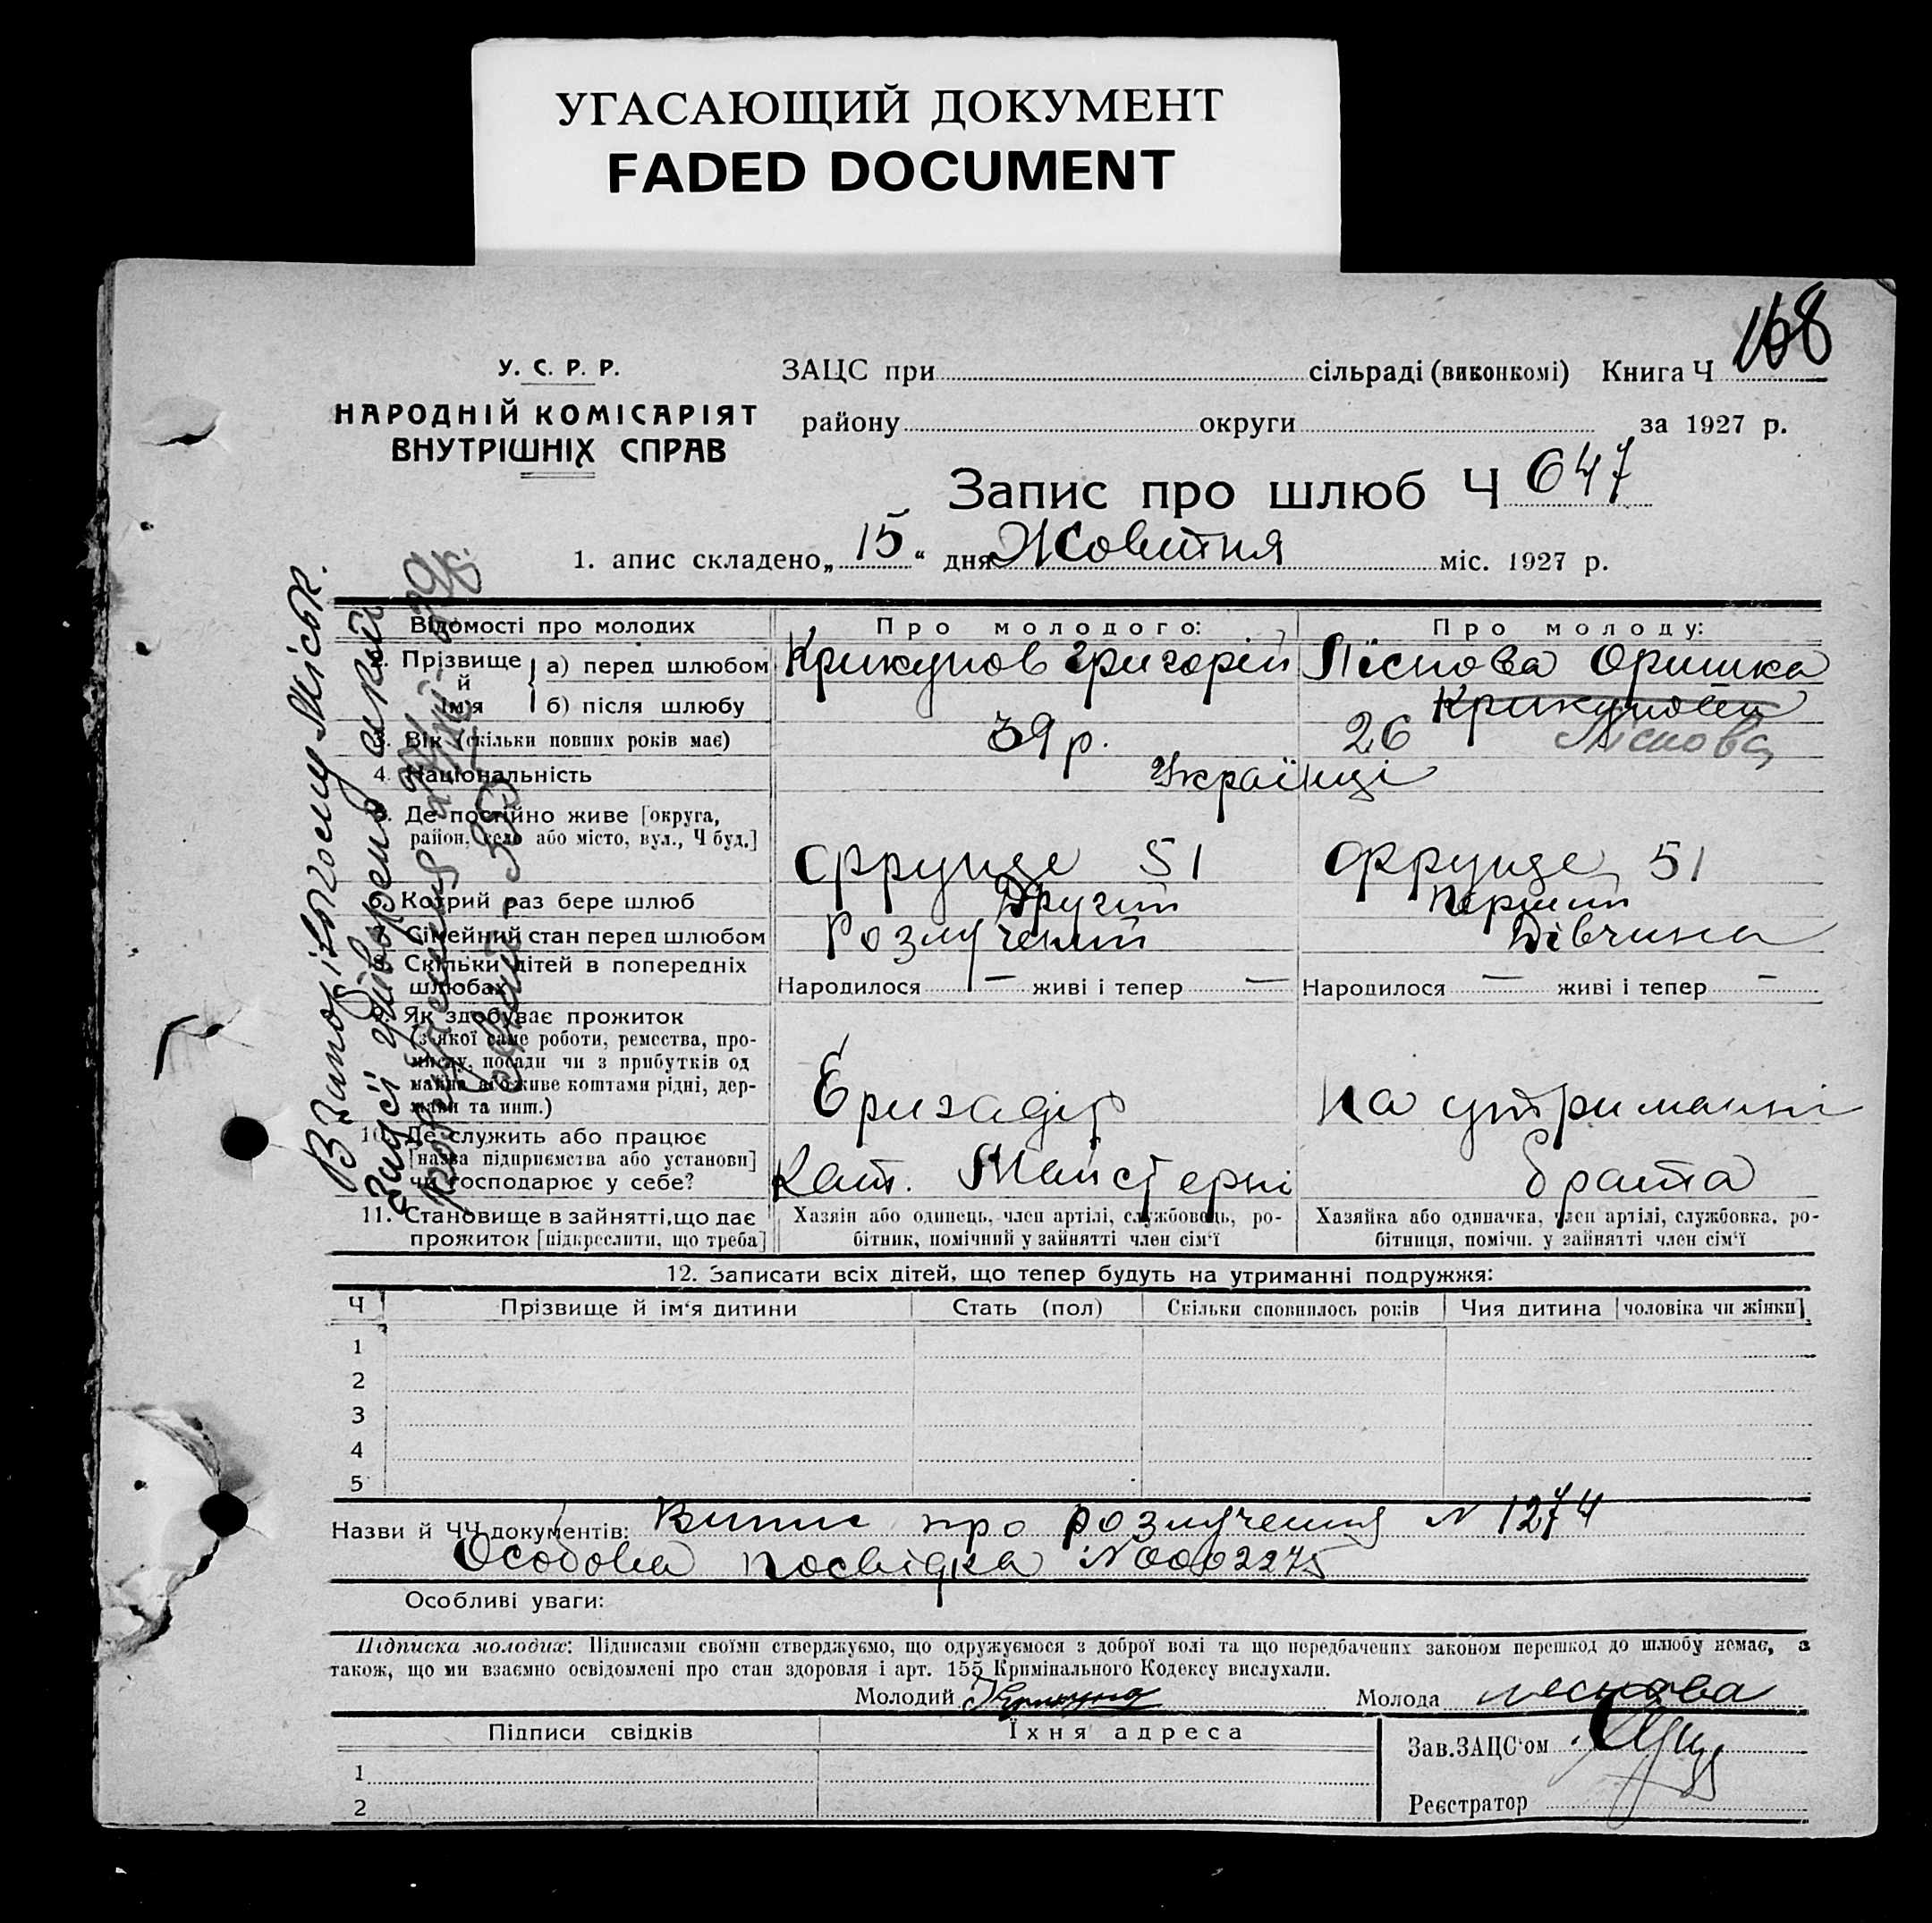 УГАСАЮЩИЙ ДОКУМЕНТ
FADED DOCUMENT
168
У. С. Р. Р.
НАРОДНІЙ КОМІСАРІЯТ
ВНУТРІШНІХ СПРАВ
ЗАЦС при сільраді (виконкомі) Книга Ч
району округи за 1927 р.
Запис про шлюб Ч 647
1. апис складено „ 15 “ дня Жовтня міс. 1927 р.
Відомості про молодих
Про молодого:
Про молоду:
Прізвище й ім'я
а) перед шлюбом
Крикунов Григорій
Піснова Оришка
б) після шлюбу
Крикунови
Піснова
3. Вік (скільки повних років має)
39 р.
26
4. Національність
Українці
5. Де постійно живе [округа,
район, село або місто, вул., Ч буд.]
Фрунзе 51
Фрунзе 51
6. Котрий раз бере шлюб
Другий
Перший
7. Сімейний стан перед шлюбом
Розлучений
Дівчина
8. Скільки дітей в попередніх
шлюбах
Народилося — живі і тепер —
Народилося — живі і тепер —
9. Як здобуває прожиток
(з якої саме роботи, ремества, про-
мислу, посади чи з прибутків од
майна або живе коштами рідні, дер-
жави та инш.)
Бригадір
На утриманні
10. Де служить або працює
[назва підприємства або установи]
чи господарює у себе?
Майстерні
брата
11. Становище в зайнятті, що дає
прожиток [підкреслити, що треба]
Хазяін або одинець, член артілі, службовець, ро-
бітник, помічний у зайнятті член сім'ї
Хазяйка або одиначка, член артілі, службовка, ро-
бітниця, помічн. у зайнятті член сім'ї
12. Записати всіх дітей, що тепер будуть на утриманні подружжя:
Ч Прізвище й ім'я дитини Стать (пол) Скільки сповнилось років Чия дитина [чоловіка чи жінки]
1
2
3
4
5
Назви й ЧЧ документів: Випис про розлучення N 1274
Особова посвідка N 0002275
Особливі уваги:
Підписка молодих: Підписами своїми стверджуємо, що одружуємося з доброї волі та що передбачених законом перешкод до шлюбу немає, а
також, що ми взаємно освідомлені про стан здоровля і арт. 155 Кримінального Кодексу вислухали.
Молодий Молода песнова
Підписи свідків Їхня адреса
Зав. ЗАЦС'ом
1
2
Реєстратор